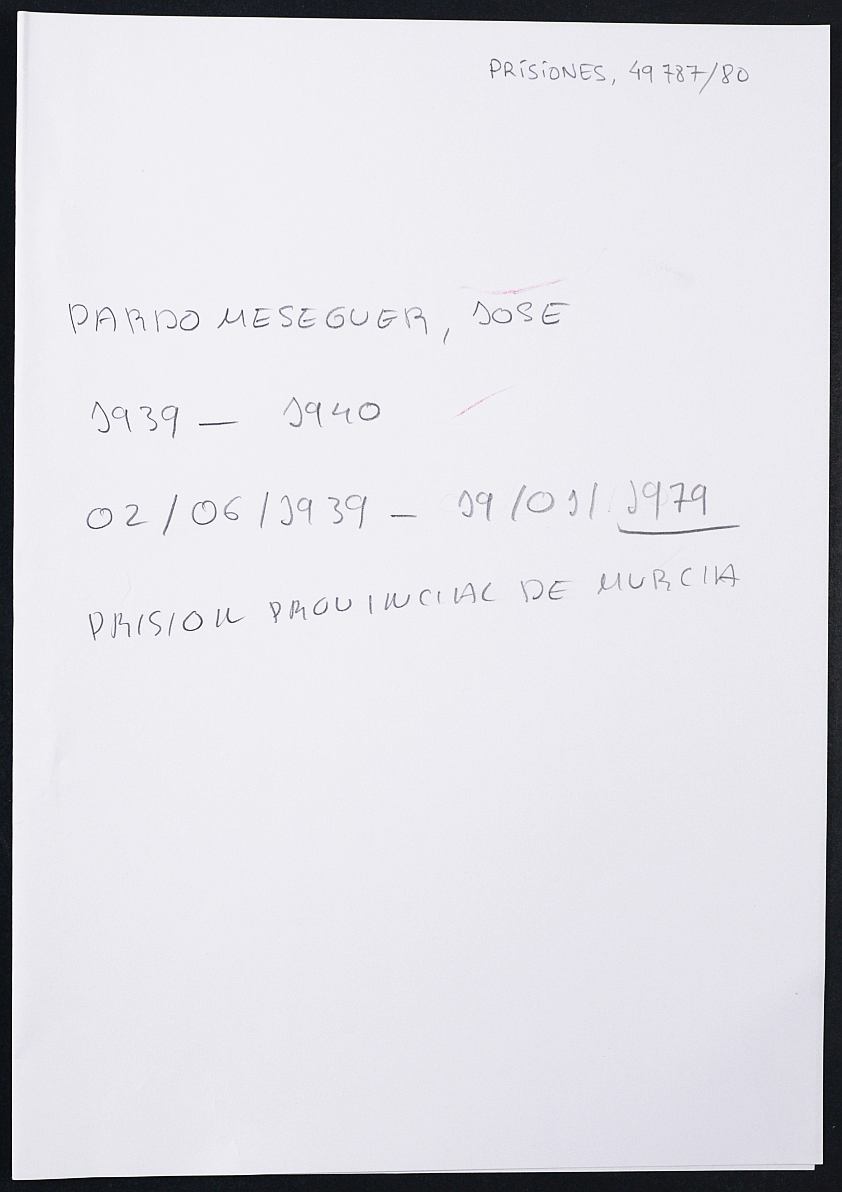 PRISIONES, 49787/80
PARDO MESEGUER, JOSE
1939 — 1940
02/06/1939 — 19/01/1979
PRISION PROVINCIAL DE MURCIA